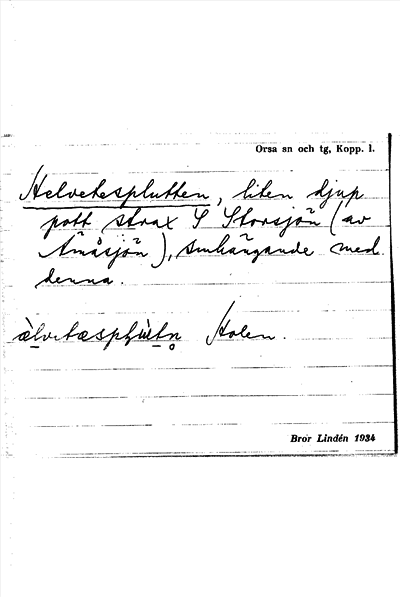 Orsa sn och tg, Kopp. l.
Helvetesplutten, liten djup
pott strax S Storsjön (av
Åmåsjön), smhängande med
denna.
Stolen.
Bror Lindén 1934